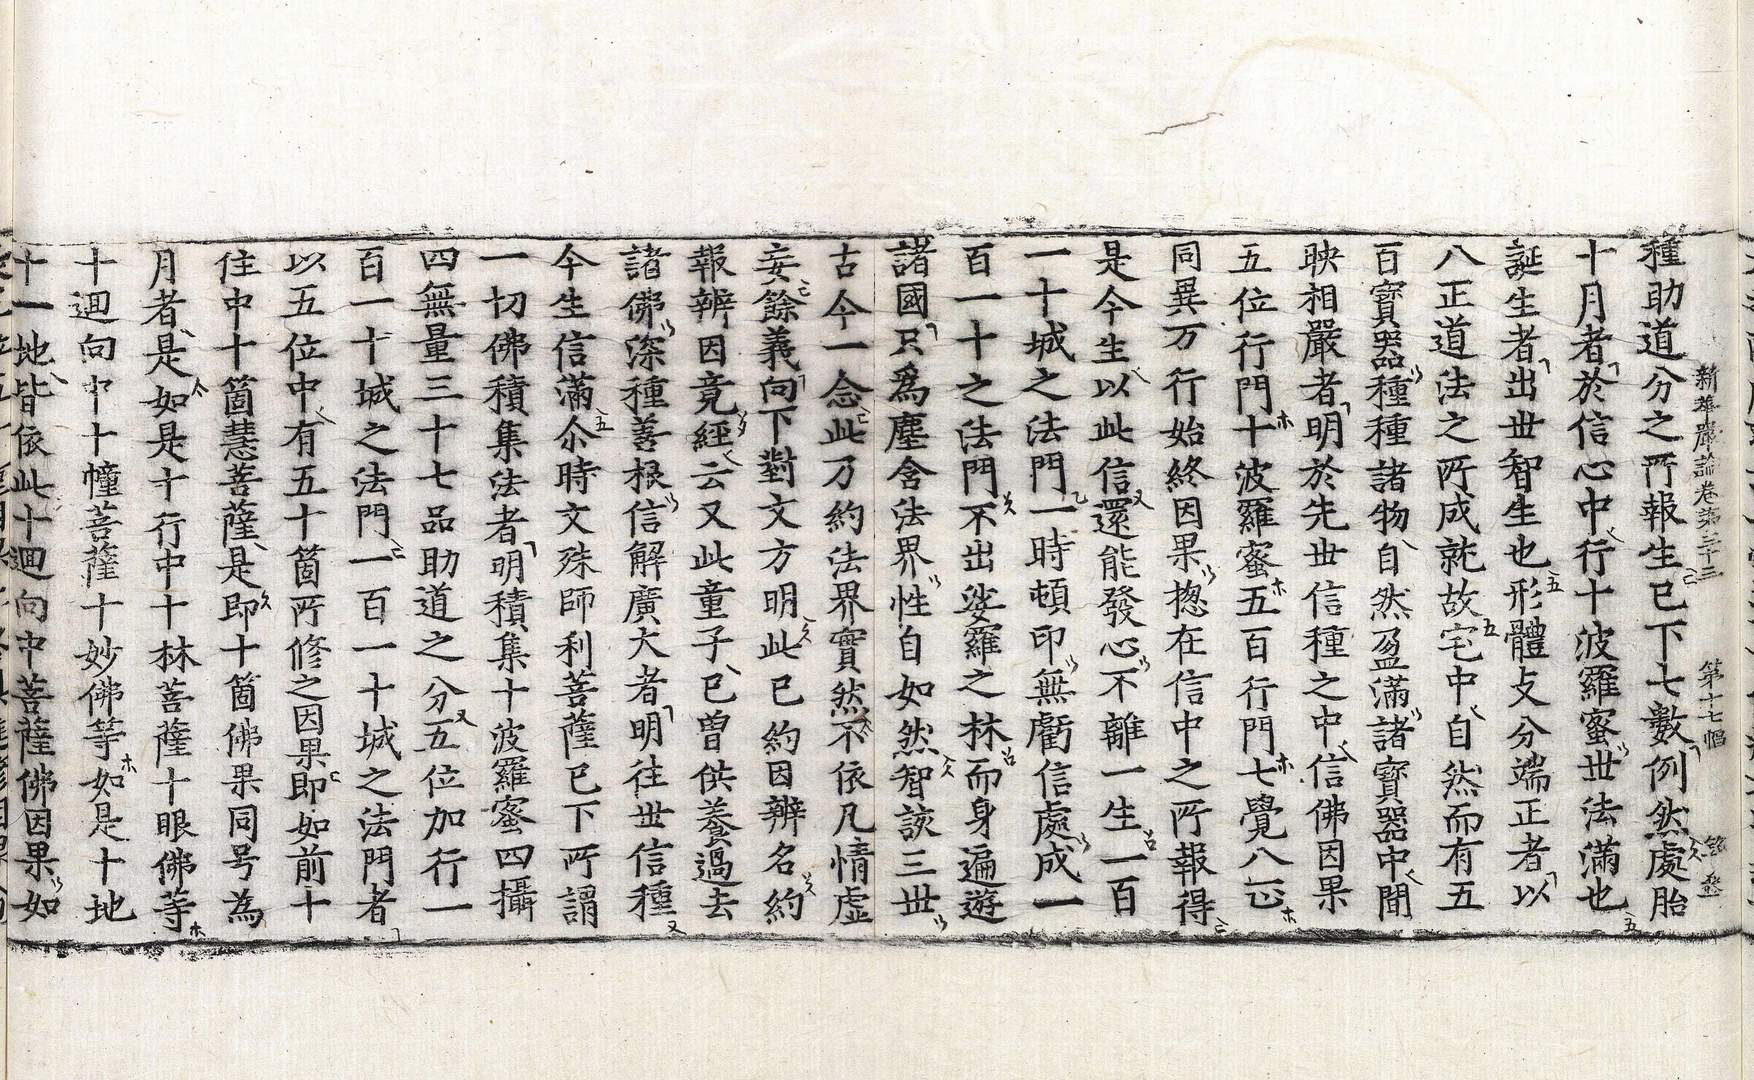 新華嚴論卷第三十三 第十七幅
種助道分之所報生已下七數例然處胎
十月者於信心中行十波羅蜜世法滿也
誕生者出世智生也形體攴分端正者以
八正道法之所成就故宅中自然而有五
百寶器種種諸物自然盈滿諸寶器中間
映相嚴者明於先世信種之中信佛因果
五位行門十波羅蜜五百行門七覺八正
同異万行始終因果揔在信中之所報得
是今生以此信還能發心不離一生一百
一十城之法門一時頓印無虧信處成一
百一十之法門不出娑羅之林而身遍遊
諸國只為塵含法界性自如然智該三世
古今一念此乃約法界實然不依凡情虛
妄餘義向下對文方明此已約因辨名約
報辨因竟經云又此童子已曾供養過去
諸佛深種善根信解廣大者明往世信種
今生信滿尒時文殊師利菩薩已下所謂
一切佛積集法者明積集十波羅蜜四攝
四無量三十七品助道之分五位加行一
百一十城之法門一百一十城之法門者
以五位中有五十箇所修之因果即如前十
住中十箇慧菩薩是即十箇佛果同号為
月者是如是十行中十林菩薩十眼佛等
十迴向中十幢菩薩十妙佛等如是十地
十一地皆依此十迴向中菩薩佛因果如